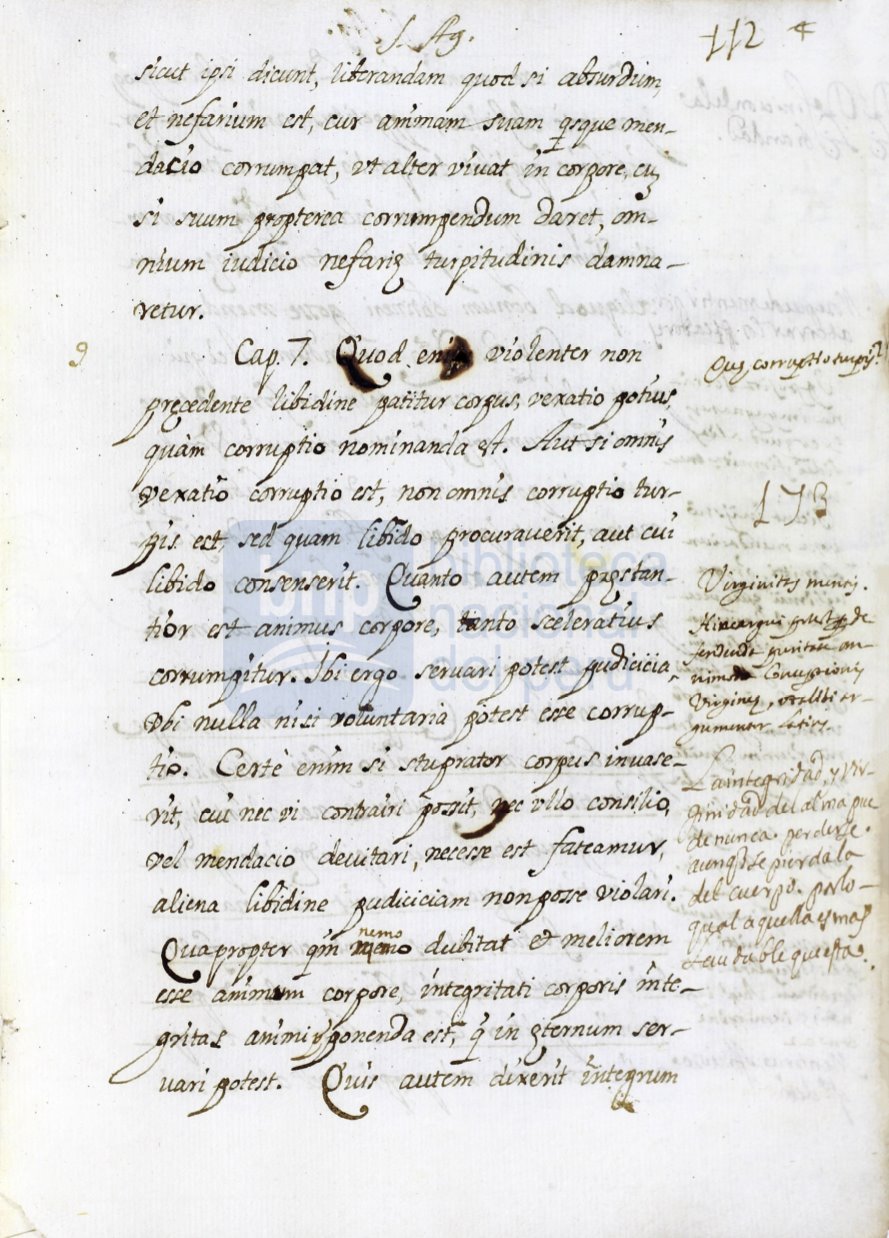 S. Ag.
112
sicut ipsi dicunt, liberandam quod si absurdum
et nefarium est, cur animam suam qsque men-
dacio corrumpat, vt alter vivat in corpore, cuʒ
si suum propterea corrumpendum daret, om-
nium iudicio nefarię turpitudinis damna-
retur.
9
Cap. 7. Quod enim violenter non
pręcedente libidine patitur corpus, vexatio potius,
quàm corruptio nominanda est. Aut si omnis
vexatio corruptio est, non omnis corruptio tur-
pis est, sed quam libido procuraverit, aut cui
libido consenserit. Quanto autem pręstan-
tior est animus corpore, tanto sceleratius
corrumpitur. Ibi ergo servari potest pudicicia,
vbi nulla nisi voluntaria potest esse corrup-
tio. Certè enim si stuprator corpus invase-
rit, cui nec vi contrairi possit, nec vllo consilio,
vel mendacio devitari, necesse est fateamur,
aliena libidine pudiciciam non posse violari.
Quapropter qm̄ nemo dubitat et meliorem
esse animum corpore, integritati corporis inte-
gritas animi pponenda est, q̄ in ęternum ser-
vari potest. Quis autem dixerit integrum
Quę corruptio turpis?
173
Virginitas mentis.
La integridad, y vir-
ginidad del alma pue
de nunca perderse.
aunq̄ se pierda la
del cuerpo. por lo-
qual aquella es mas
laudable que esta.
bnp
biblioteca
nacional
del perú